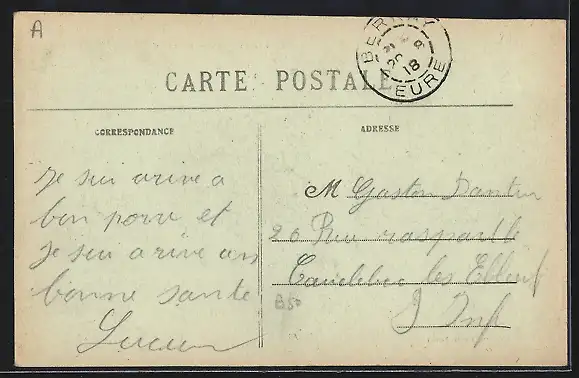 A
BERNAY
20
18
EURE
CARTE POSTALE
CORRESPONDANCE
ADRESSE
Je sui arive a
bon porw et
Je sui arive en
bonne sante
Lucien
M Gaston Dantu
26 Rue raspaille
Caudebec les Elbeuf
S Inf
B50